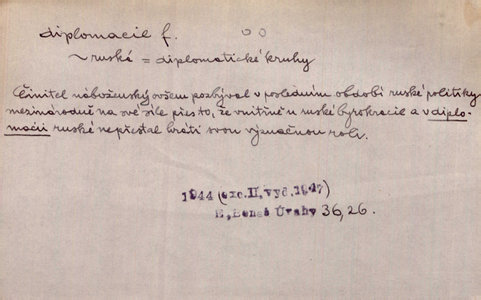 diplomacie f.
~ ruská = diplomatické kruhy
Činitel náboženský ovšem pozbýval v posledním období ruské politiky
mezinárodně na své síle přes to, že vnitřně u ruské byrokracie a v diplo-
macii ruské nepřestal hráti svou význačnou roli.
1944 (exc. II, vyd. 1947)
E. Beneš Úvahy 36, 26.